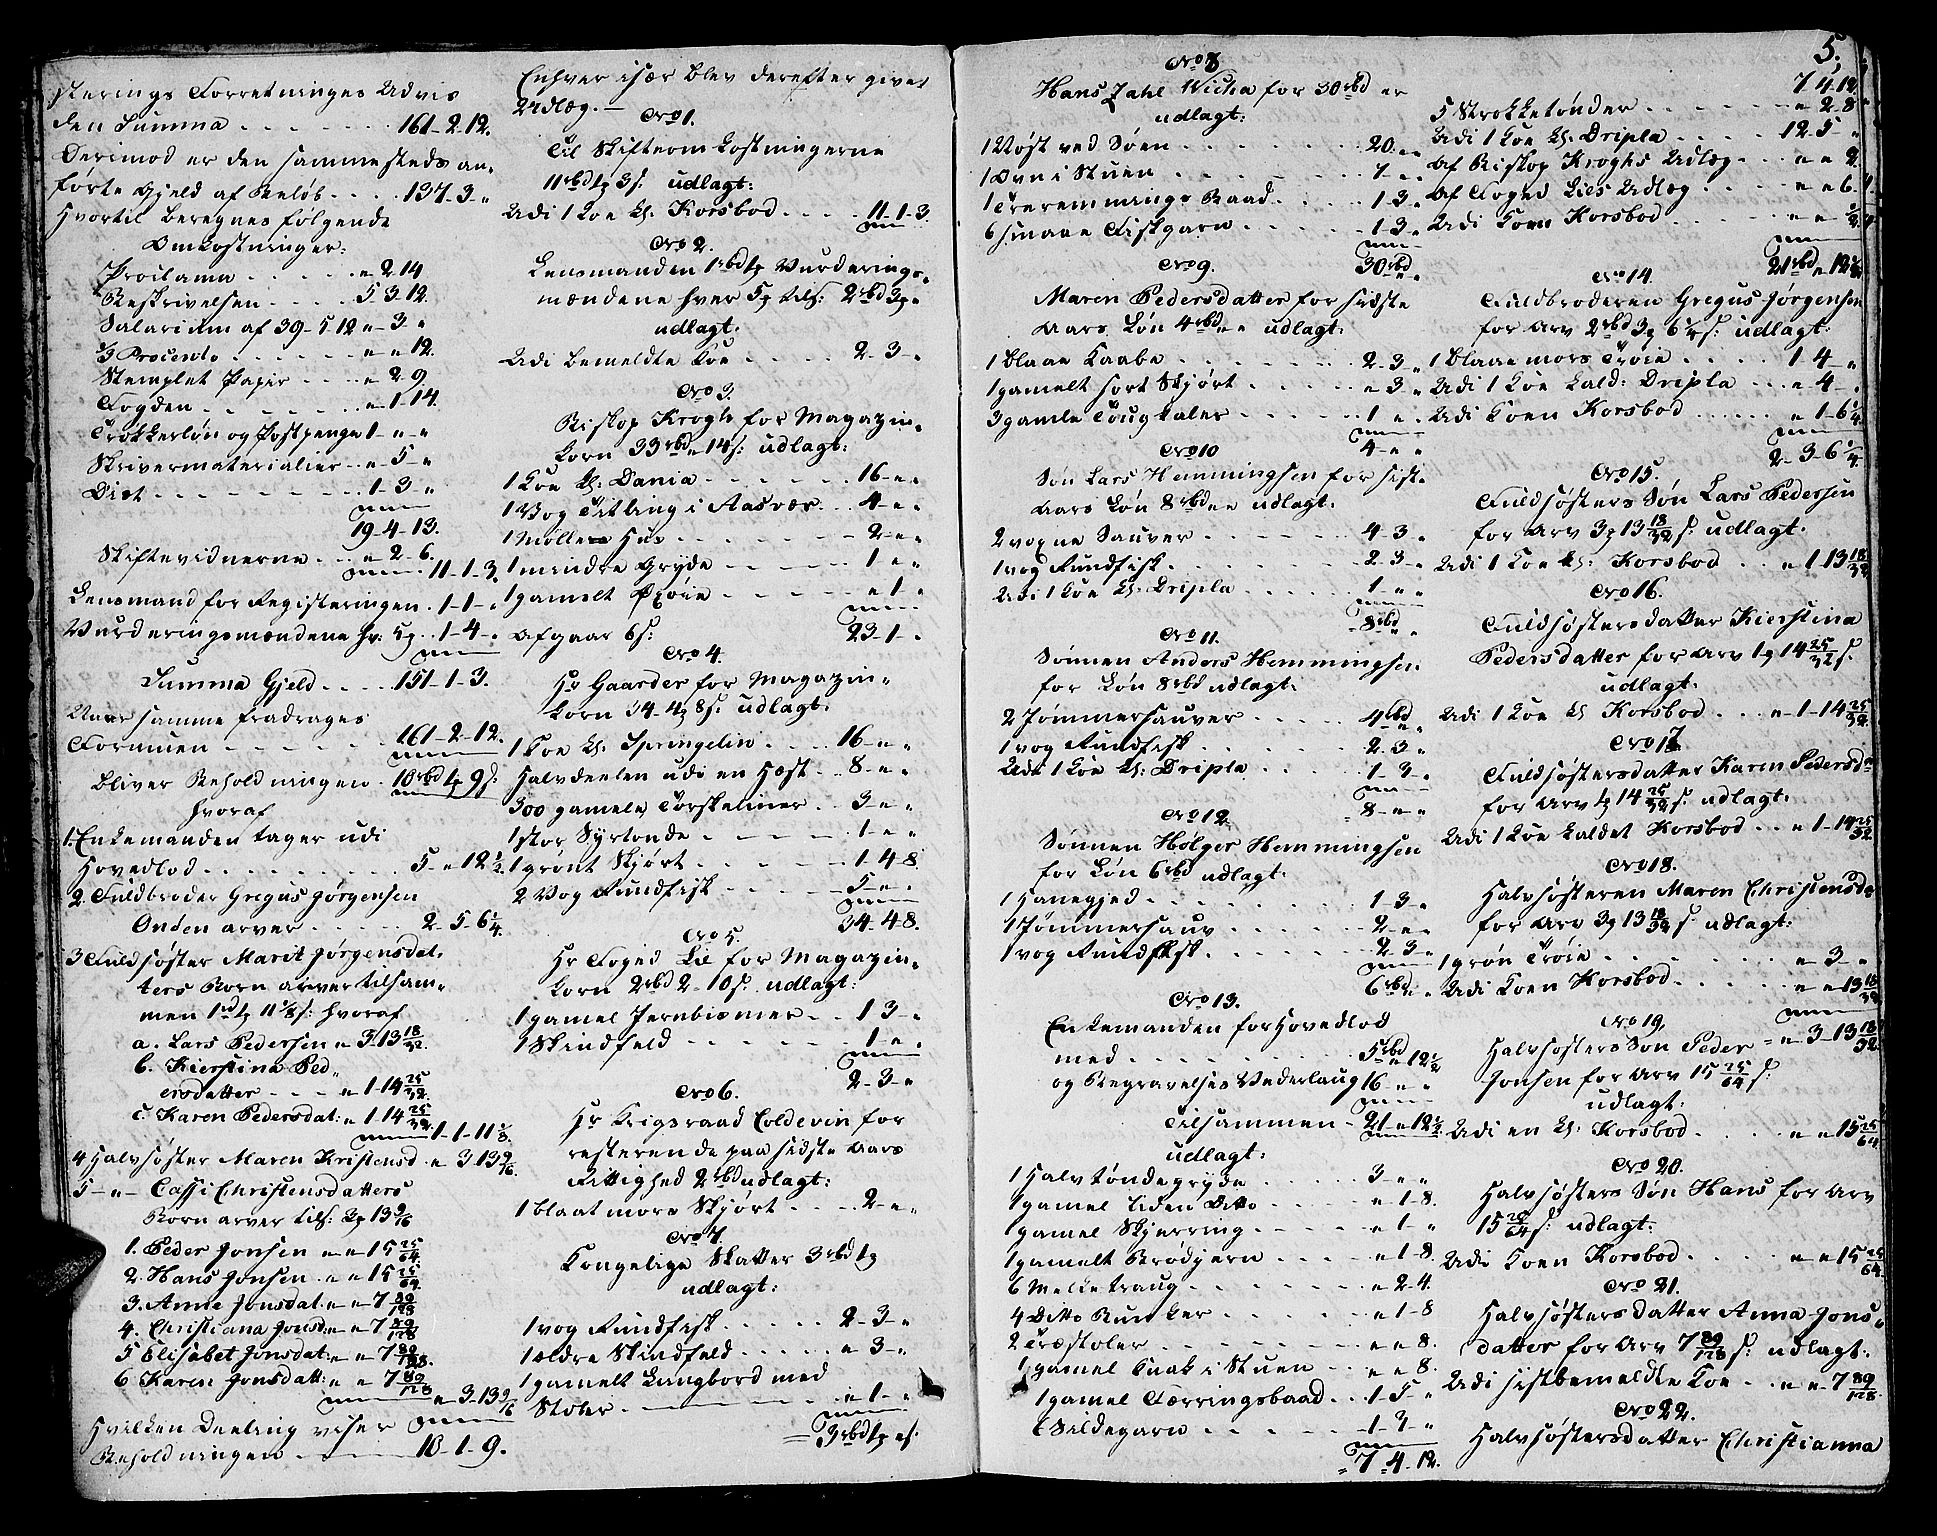 sterings Forretninges Udvis
den Summa . . . . . 161-2-12.
Derimod er den sammesteds an-
førte Gjeld af Beløb . . . 137-3-"
hvortil beregnes følgende
Omkostninger:
Proclama . . . . . " 2 14
Beskrivelsen . . . . 5 3 12.
Salarium af 39-5 12 " - 3 "
1/3 Procento . . . . . " " 12.
Stemplet Papir . . . " 2 9
Fogden . . . . . " - 1 14.
Trokkerløn og Postpenge 1 - " - "
Skrivermaterialier . . " - 5 - "
Diæt . . . . . . 1 - 3 - "
19-4-13.
Skiftevidnerne . . . " - 2 - 6.
11-1-3.
Lensmand for Registeringen . 1-1-"
Vurderingsmændene hv: 5 . . 1-4-"
Summa Gjeld . . . . 151-1-3.
Naar samme fradrages
Formuen . . . . . 161-2-12.
bliver Beholdningen . 10 rbd 1 9 s.
hvoraf
1. Enkemanden tager udi
Hovedlod . . . . . 5-"12 1/2.
2. Fuldbroder Gregus Jørgensen
Onden arver . . . . 2-5-6 1/4.
3 Fuldsøster Marit Jørgensdat.
ters Børn arver tilsam-
men 1 rd 1 11 1/8 s: hvoraf
a. Lars Pedersen " 3 13 18/32.
b. Kierstina Ped-
ersdatter . . . " - 1-14 25/32.
c. Karen Pedersdat: " 1 14 25/32.
1-1-11 1/8.
4 Halvsøster Maren Kristensd " 3 13 9/16.
5 - " - Cassi Christensdatters
Børn arver tils: 3 13 9/16
1. Peder Jonsen " - " 15 25/64.
2. Hans Jonsen . " - " 15 25/64.
3. Anne Jonsdat. " - " 7 89/128
4. Christiana Jonsd: " - " 7 89/128
5 Elisabet Jonsdat: " - " 7 89/128.
6 Karen Jonsdatt: " - " 7 89/128
" 3-13 9/16
Hvilken Deeling viser
Beholdningen . . . . 10-1-9.
Enhver især blev derefter givet
Udlæg. -
Nro 1.
Til Skifteomkostningerne
11 rbd 1 3 s: udlagt:
Udi 1 Koe k: Korsbod . . . . 11-1-3.
Nro 2.
Lensmanden 1 rbd 1 Vurderings-
mændene hver 5 tils: 2 rbd 3 "
udlagt.
Udi bemeldte Koe . . . . 2-3-"
Nro 3.
Biskop Krogh for Magazin-
korn 33 rbd " 14 s: udlagt:
1 Koe k: Dania . . . . 16-"-"
1 Vog Titling i Aasvær . . 4-"-"
1 Mølle Hus . . . . . 2-"-"
1 mindre Gryde . . . . 1-"-"
1 gamelt Øxøie . . . . . " 1-"
Afgaar 6 s: 23-1-"
Nro 4.
Hr Gaarder for Magazin-
korn 34-4 8 s: udlagt:
1 Koe k: Springelin . . . 16-"-"
Halvdeelen udi en Hæst . . 8-"-"
300 gamele Torskeliner . . 3-"-"
1 stor Syrtonde . . . . 1-"-"
1 grønt Skjørt . . . . . 1-4 8
2 Vog Rundfisk . . . . 5-"-"
34-4 8.
Nro 5.
Hr Foged Lie for Magazin-
korn 2 rbd 2-10 s: udlagt:
1 gamel Jernbismer . . 1 3-"
1 Skindfeld . . . . . 1-"-"
2-3-"
Nro 6.
Hr Krigsraad Coldevin for
resterende paa sidste Aars
Rettighed 2 rbd udlagt:
1 blaat mors Skjørt . . . 2-"-"
Nro 7.
Kongelige Skatter 3 rbd 1
udlagt:
1 vog Rundfisk . . . . . 2-3-"
1 ældre Skindfeld . . . . " - 3-"
1 gamelt Langbord med
Stoler . . . . . . " 1-"
= 3 rbd 1 " s:
Nro 8
Hans Zahl Wicha for 30 rbd er
udlagt:
1 Nøst ved Søen . . . . 20 " "
1 Ovn i Stuen . . . . 7 - " "
1 Træremminge Baad . . . 1 3 "
6 smaae Fiskgarn . . . . 1 3 "
30 rbd " "
Nro 9.
Maren Pedersdatter for sidste
Aars Løn 4 rbd " " udlagt:
1 blaae Kaabe . . . . 2-3 "
1 gamelt sort Skjørt . . . " 3 "
3 gamle Tougkaler . . . 1 " "
4-" "
Nro 10
Søn Lars Hemmingsen for sist-
Aars Løn 8 rbd " " udlagt:
2 voxne Sauver . . . . 4 3 "
1 vog Rundfisk . . . . 2 3 "
Udi 1 Koe k: Dripla . . . 1-" "
8 rbd " "
Nro 11.
Sønnen Anders Hemmingsen
for Løn 8 rbd udlagt:
2 Jømmersauver . . . . 4 rbd " "
1 vog Rundfisk . . . . 2 3 "
Udi 1 Koe k: Dripla . . . 1-3 "
8-" "
Nro 12.
Sønnen Holger Hemmingsen
for Løn 6 rbd udlagt:
1 Hanegjed . . . . . 1-3-"
1 Jømmersauv . . . . 2-" "
1 vog Rundfisk . . . . 2 3 "
6 rbd " "
Nro 13.
Enkemanden for Hovedlod
med . . . . . . 5 rbd " 12 1/2
og Begravelses Vederlaug 16-" "
Tilsammen - 21-" 12 1/2.
udlagt:
1 Halvtøndegryde . . . . 3-" "
1 gamel liden Ditto . . . " - 1-8.
1 gamel Skjerring . . . . " 1-"
1 gamelt Brødjern . . . . " 1-8
6 Melketraug . . . . . " 2-4.
4 Ditto Bunker . . . . . " 1-8
2 Træstoler . . . . . " " 8.
1 gamel Kuak i Stuen . . . " " 8.
1 gamel Færringsbaad . . . 1-5-"
6 Sildegarn . . . . . 1-3-"
" 7 -4-12.
5.
7 4 12
5 Strokketønder . . . . " 2-8
Udi 1 Koe k: Dripla . . . 12-5-"
Af Biskop Kroghs Udlæg . . " " 2
Af Foged Lies Udlæg . . . " " 6
Udi Koen Korsbod . . . . " " 1/2
21 rbd " 12 1/2
Nro 14.
Fuldbroderen Gregus Jørgensen
for Arv 2 rbd 3 6 1/4 s: udlagt:
1 blaae mors Trøie . . . . 1-4-"
Udi 1 Koe kald: Dripla . . . " 4-"
Udi Koen Korsbod . . . . " 1-6 1/4
2-3-6 1/4.
Nro 15.
Fuldsøsters Søn Lars Pedersen
for Arv 3 13 18/32 s. udlagt.
Udi 1 Koe k: Korsbod . . . " 1-13 18/32
Nro 16.
Fuldsøstersdatter Kierstina
Pedersdatter for Arv 1 14 25/32 s.
udlagt:
Udi 1 Koe k: Korsbod . . . " - 1-14 25/32.
Nro 17.
Fuldsøstersdatter Karen Pedersd
for Arv 1 14 25/32 s: udlagt:
Udi 1 Koe kaldet Korsbod . . " 1-14 25/32.
Nro 18.
Halvsøsteren Maren Christensd
for Arv 3 13 18/32 s: udlagt:
1 grøn Trøie . . . . . " 3-"
Udi Koen Korsbod . . . . " " 13 18/32
Nro 19. = " - 3-13 18/32.
Halvsøsters Søn Peder
Jonsen for Arv 15 25/64 s:
udlagt:
Udi en k: Korsbod . . . . " " 15 25/64.
Nro 20.
Halvsøsters Søn Hans for Arv
15 25/64 s: udlagt:
Udi Koen Korsbod . . . . " " 15 25/64.
Nro 21.
Halvsøstersdatter Anna Jons-
datter for Arv 7 89/128 s: udlagt:
Udi sistbemeldte Koe . . . " " 7 89/128.
Nro 22.
Halvsøstersdatter Christianna